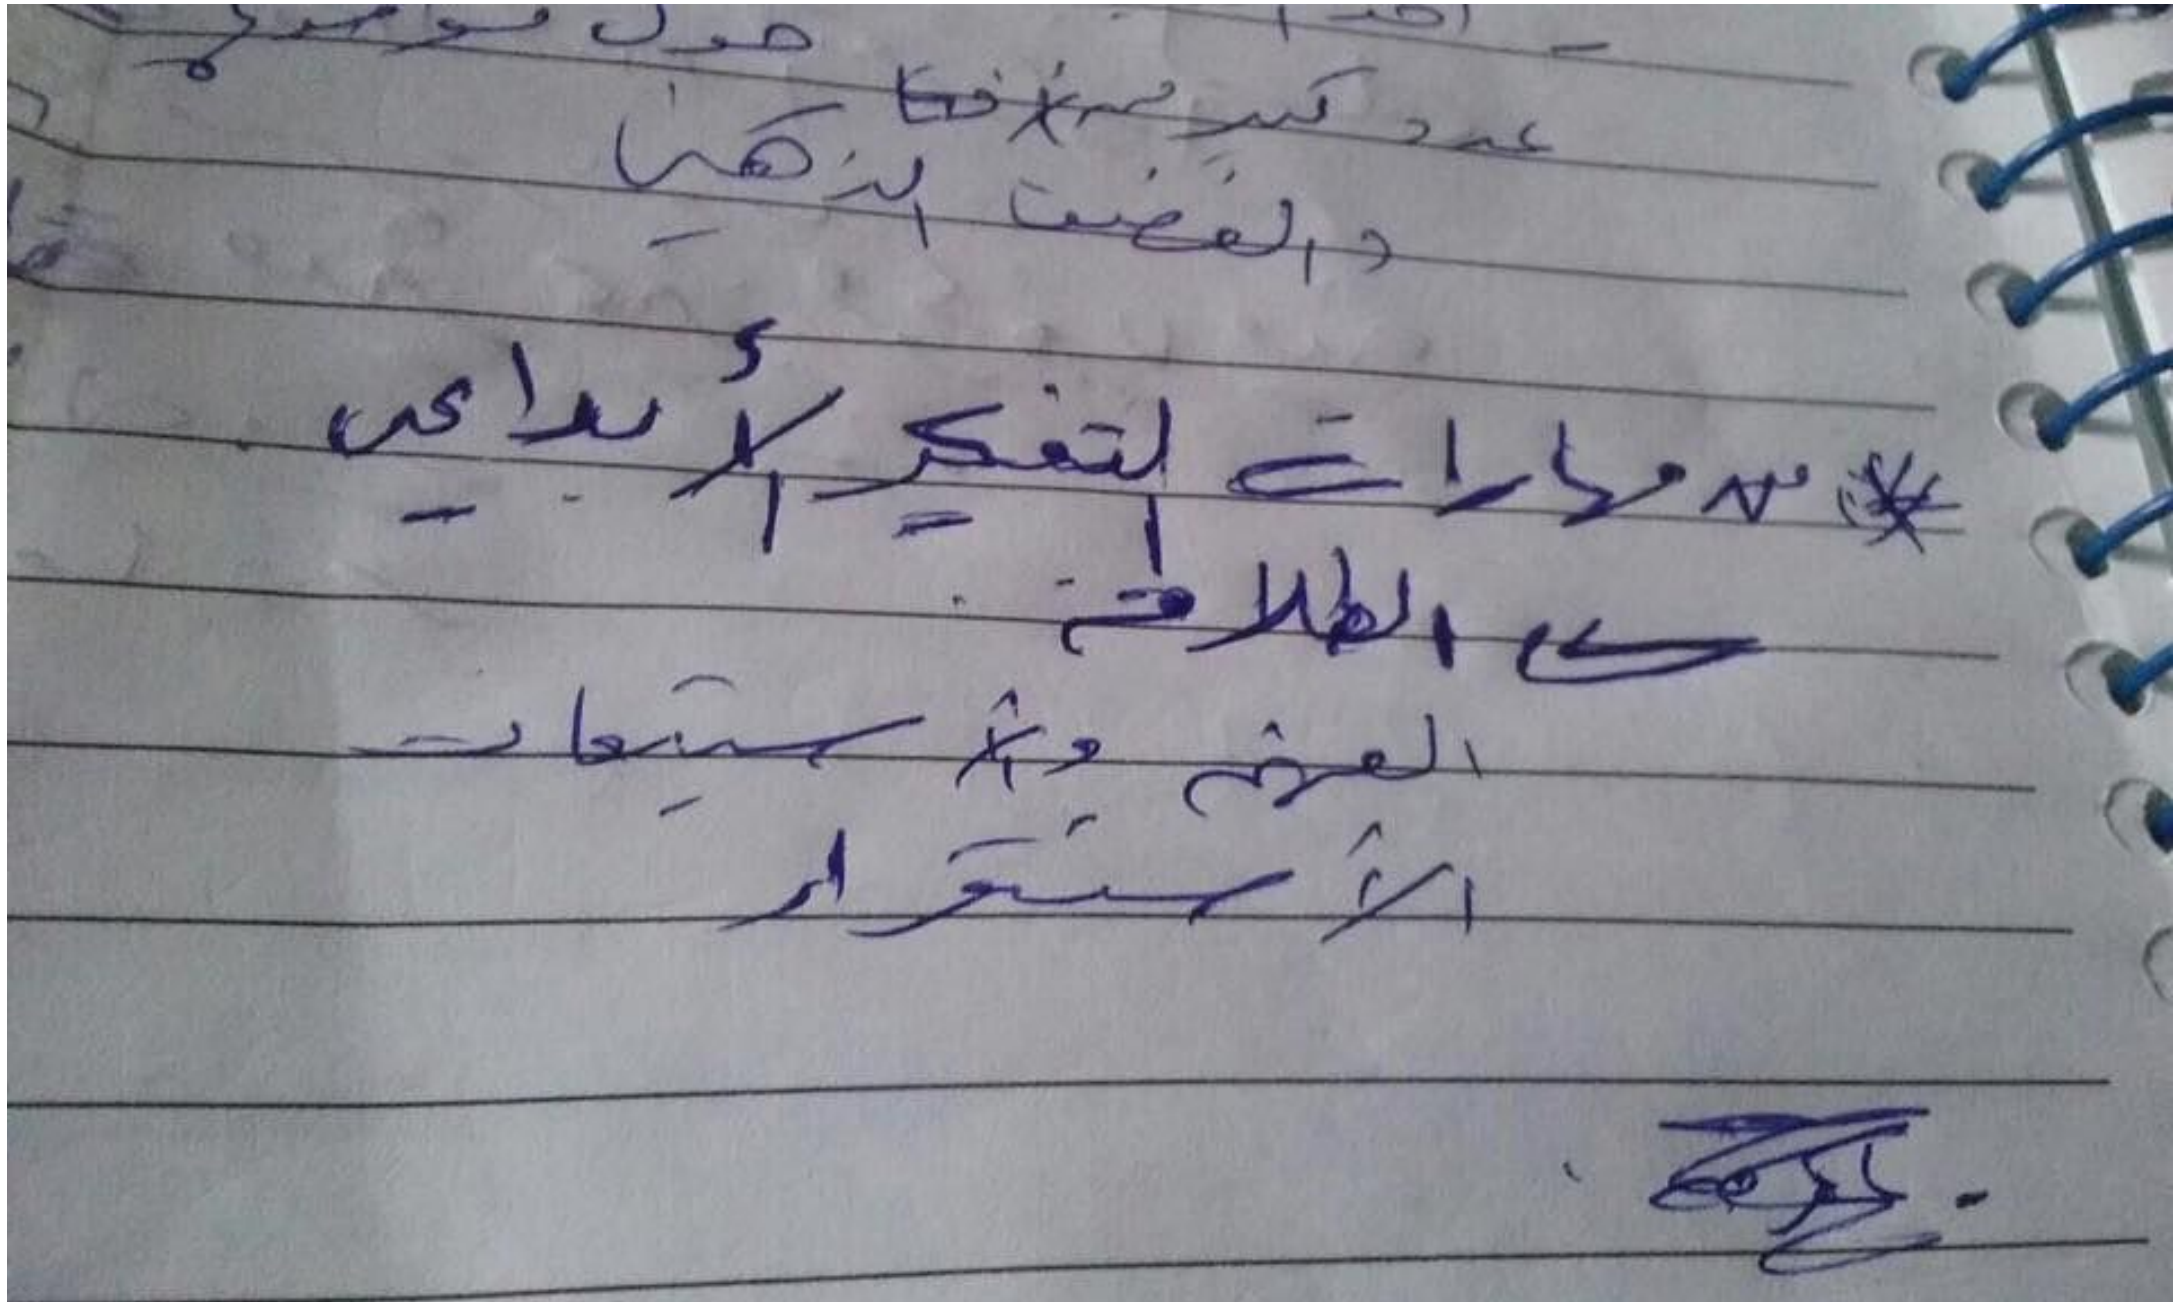 حول موضوع
عدد كبير من الأفكار
والعصف الذهني
* من مهارات التفكير الأبداعي
الطلاقة
العرض والأستيعاب
الأستقرار